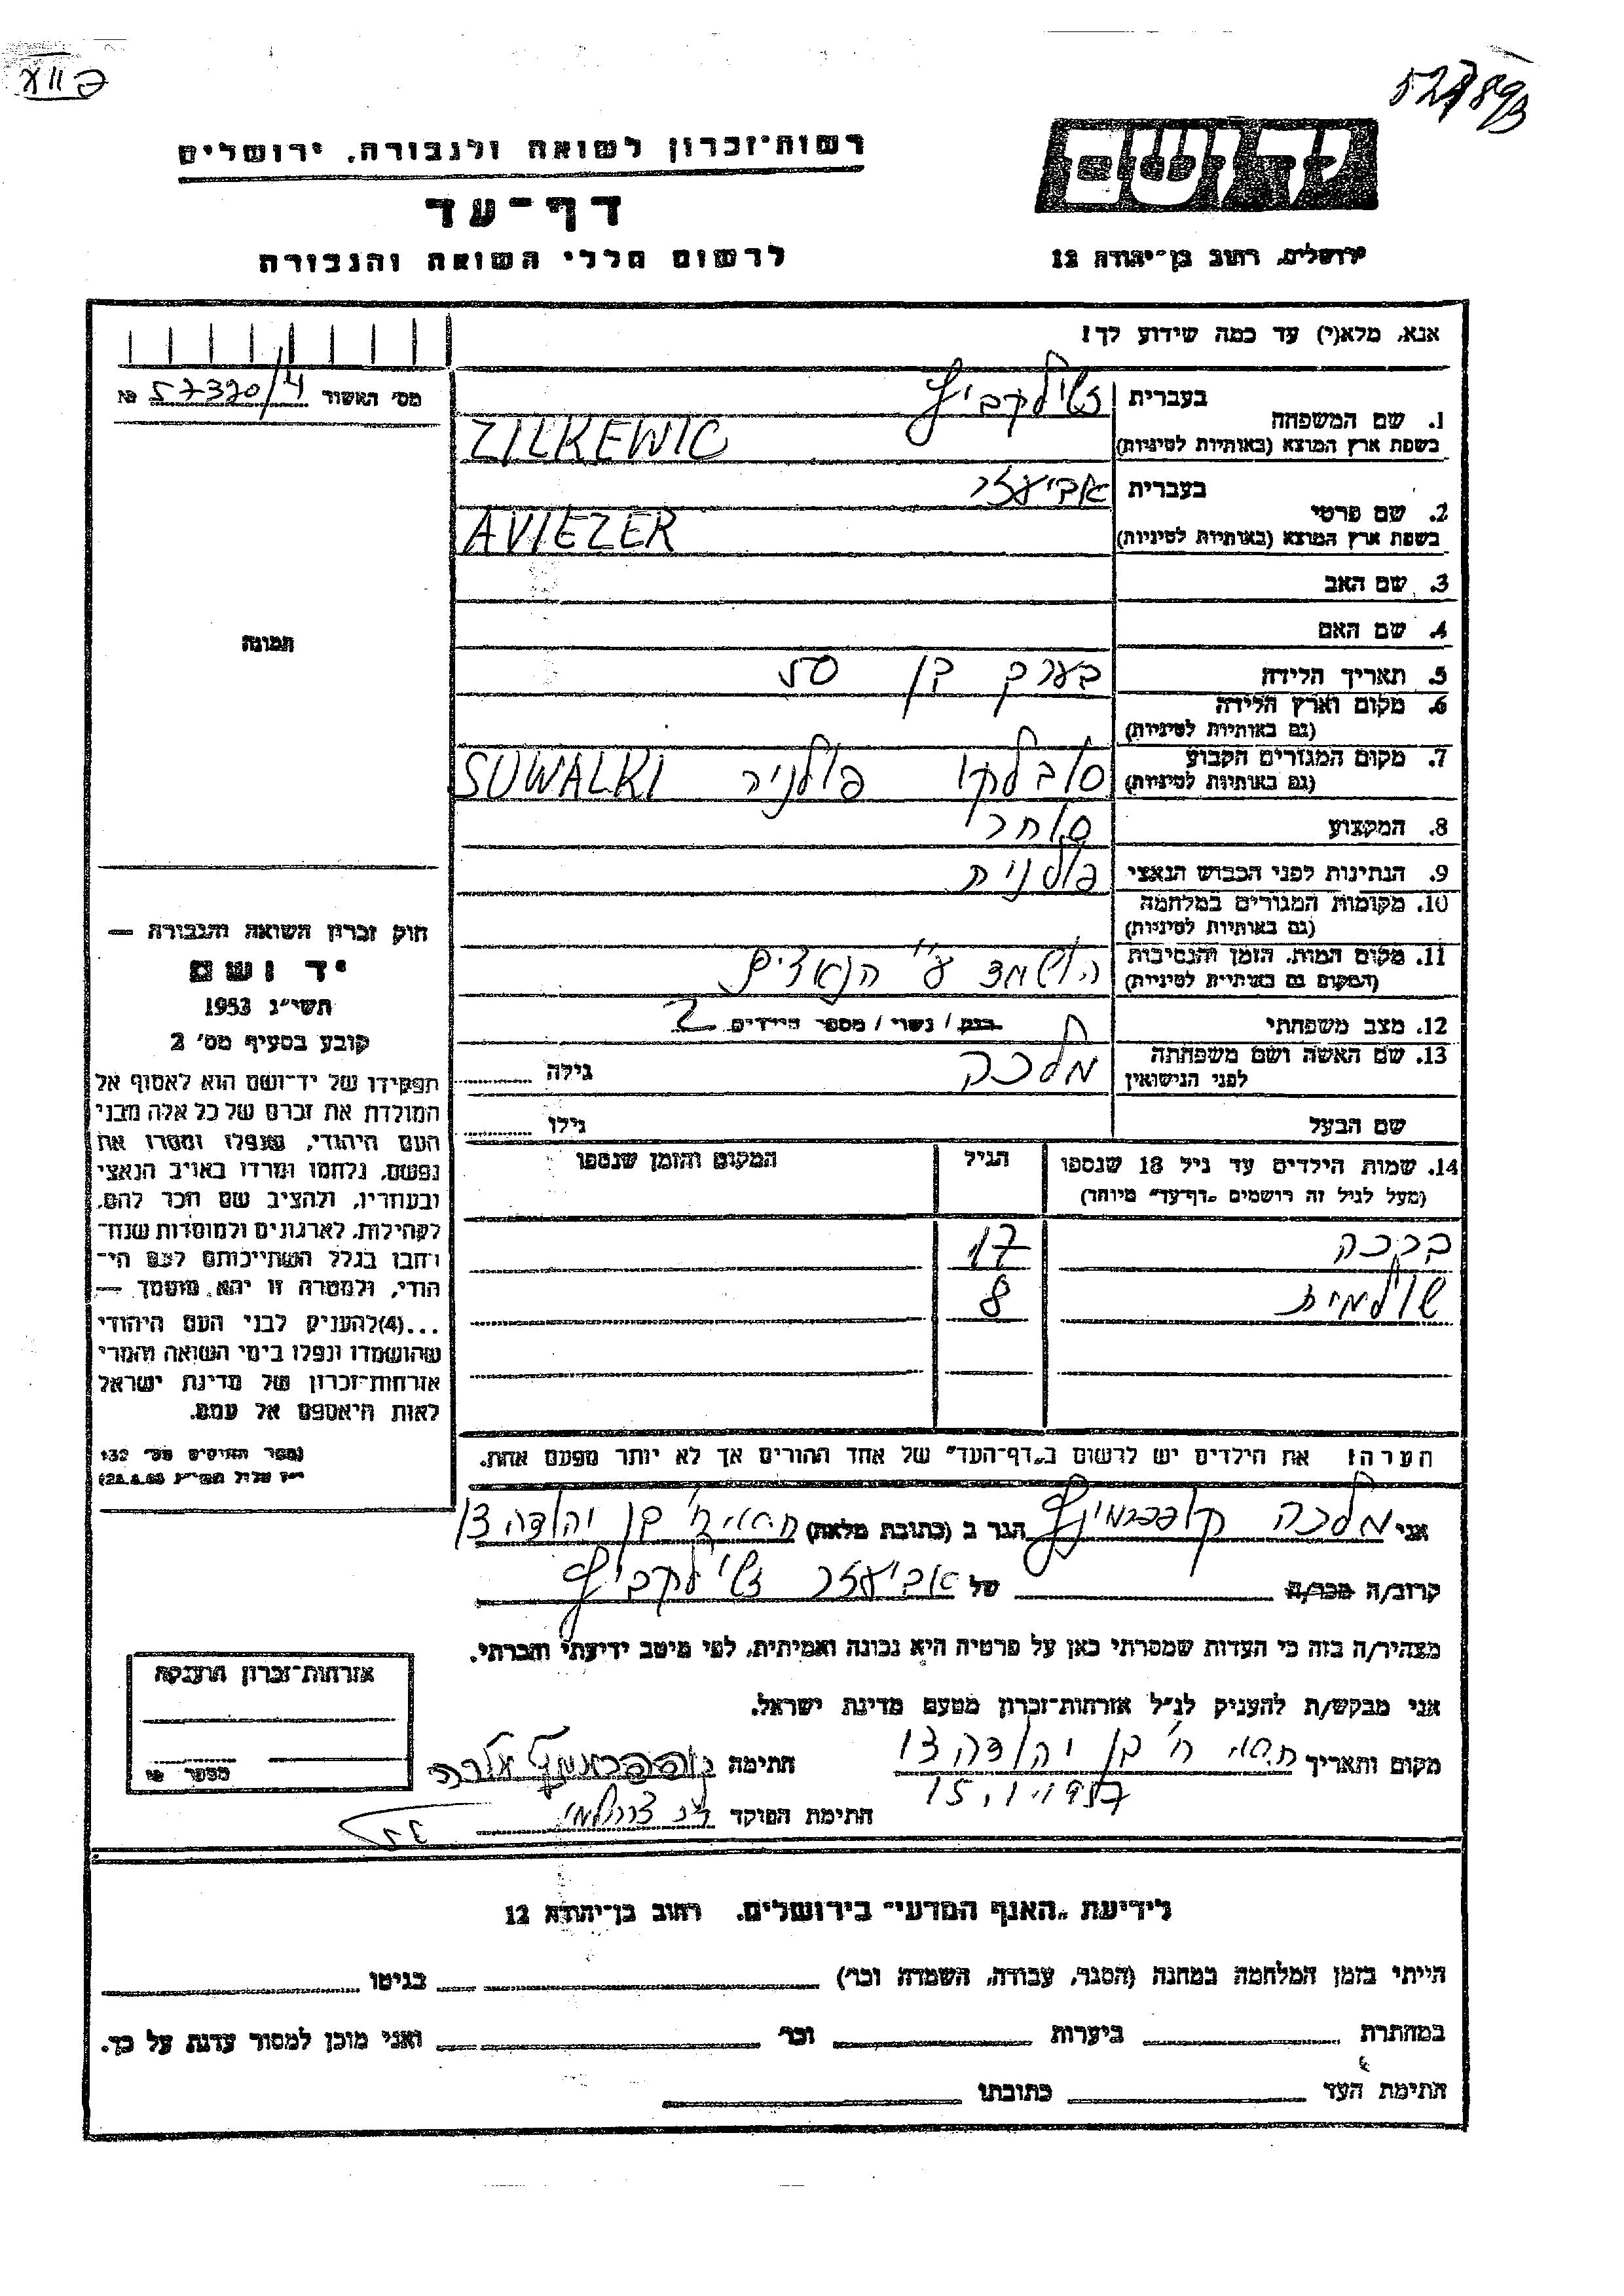 52789/3
רשות־זכרון לשואה ולגבורה, ירושלים
דף־עד
לרשום חללי השואה והגבורה
יד ושם
ירושלים, רחוב בן־יהודה 12
אנא, מלא(י) עד כמה שידוע לך!
מס׳ האשור 57320/4 №
1. שם המשפחה
בעברית זשילקביץ
בשפת ארץ המוצא (באותיות לטיניות) ZILKEWIC
2. שם פרטי
בעברית אביעזר
בשפת ארץ המוצא (באותיות לטיניות) AVIEZER
3. שם האב
4. שם האם
5. תאריך הלידה בערך בן 50
6. מקום וארץ הלידה
(גם באותיות לטיניות)
7. מקום המגורים הקבוע סובלקי פולניה SUWALKI
(גם באותיות לטיניות)
8. המקצוע סוחר
9. הנתינות לפני הכבוש הנאצי פולנית
10. מקומות המגורים במלחמה
(גם באותיות לטיניות)
11. מקום המות, הזמן והנסיבות הושמד ע״י הנאצים
(המקום גם באותיות לטיניות)
12. מצב משפחתי רווק / נשוי / מספר הילדים 2
13. שם האשה ושם משפחתה מלכה גילה
לפני הנישואין
שם הבעל גילו
14. שמות הילדים עד גיל 18 שנספו הגיל המקום והזמן שנספו
(מעל לגיל זה רושמים „דף־עד״ מיוחד)
רבקה 17
שולמית 8
הערה! את הילדים יש לרשום ב„דף־העד״ של אחד ההורים אך לא יותר מפעם אחת.
תמונה
חוק זכרון השואה והגבורה —
יד ושם
תשי״ג 1953
קובע בסעיף מס׳ 2
תפקידו של יד־ושם הוא לאסוף אל
המולדת את זכרם של כל אלה מבני
העם היהודי, שנפלו ומסרו את
נפשם, נלחמו ומרדו באויב הנאצי
ובעוזריו, ולהציב שם וזכר להם,
לקהילות, לארגונים ולמוסדות שנח־
רבו בגלל השתייכותם לעם הי־
הודי, ולמטרה זו יהא מוסמך —
...(4)להעניק לבני העם היהודי
שהושמדו ונפלו בימי השואה והמרי
אזרחות־זכרון של מדינת ישראל
לאות היאספם אל עמם.
(ספר החוקים מס׳ 132
אני מלכה הגר ב (כתובת מלאה) בן יהודה 31
קרוב/ה מכר/ה של אביעזר זשילקביץ
מצהיר/ה בזה כי העדות שמסרתי כאן על פרטיה היא נכונה ואמיתית, לפי מיטב ידיעתי והכרתי.
אני מבקש/ת להעניק לנ״ל אזרחות־זכרון מטעם מדינת ישראל.
מקום ותאריך בן יהודה 31 חתימה
15.1.1957
חתימת הפוקד
אזרחות־זכרון הוענקה
מספר №
לידיעת „האגף המדעי״ בירושלים, רחוב בן־יהודה 12
הייתי בזמן המלחמה במחנה (הסגר, עבודה, השמדה וכו׳) בגיטו
במחתרת ביערות וכו׳ ואני מוכן למסור עדות על כך.
חתימת העד כתובתו